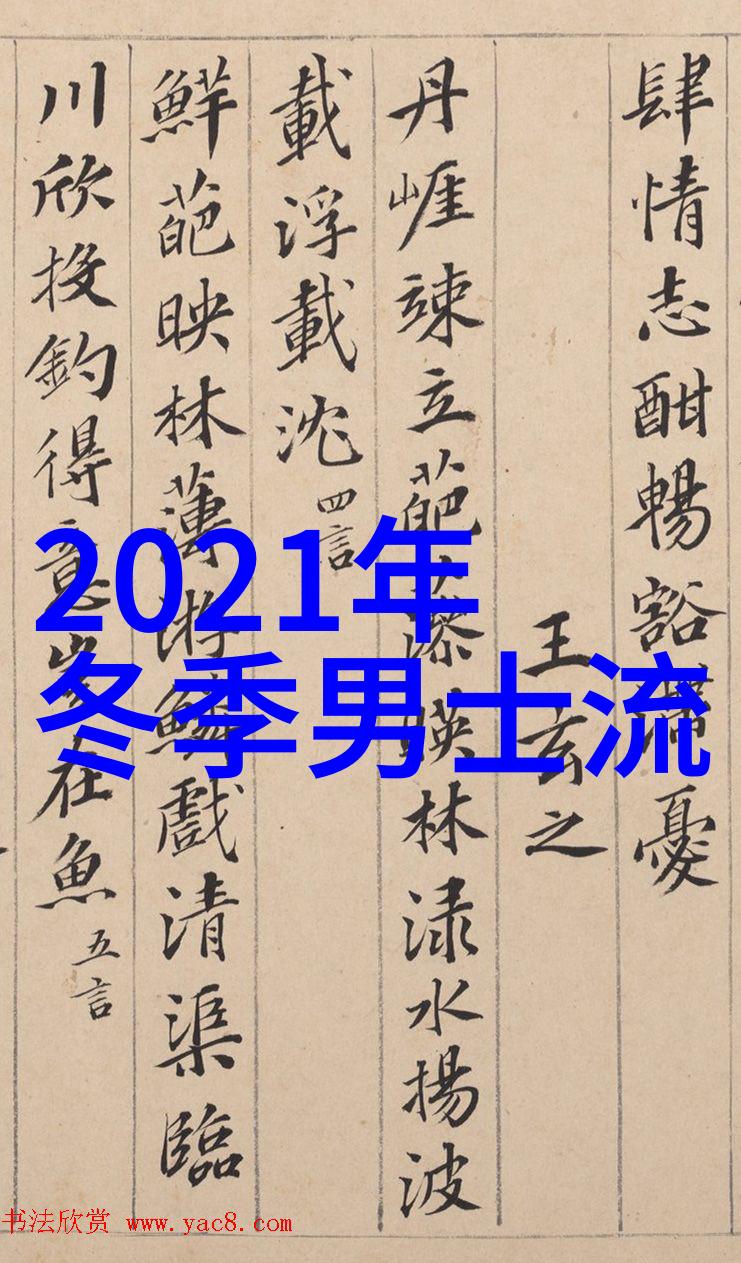 肆情志酣暢豁滯憂
王玄之
丹崕竦立葩藻暎林渌水揚波
載浮載沈 四言
鮮葩映林薄游鱗戲清渠臨
川欣投釣得意豈在魚 五言
2021年
冬季男士流
书法欣赏 www.yac8.com